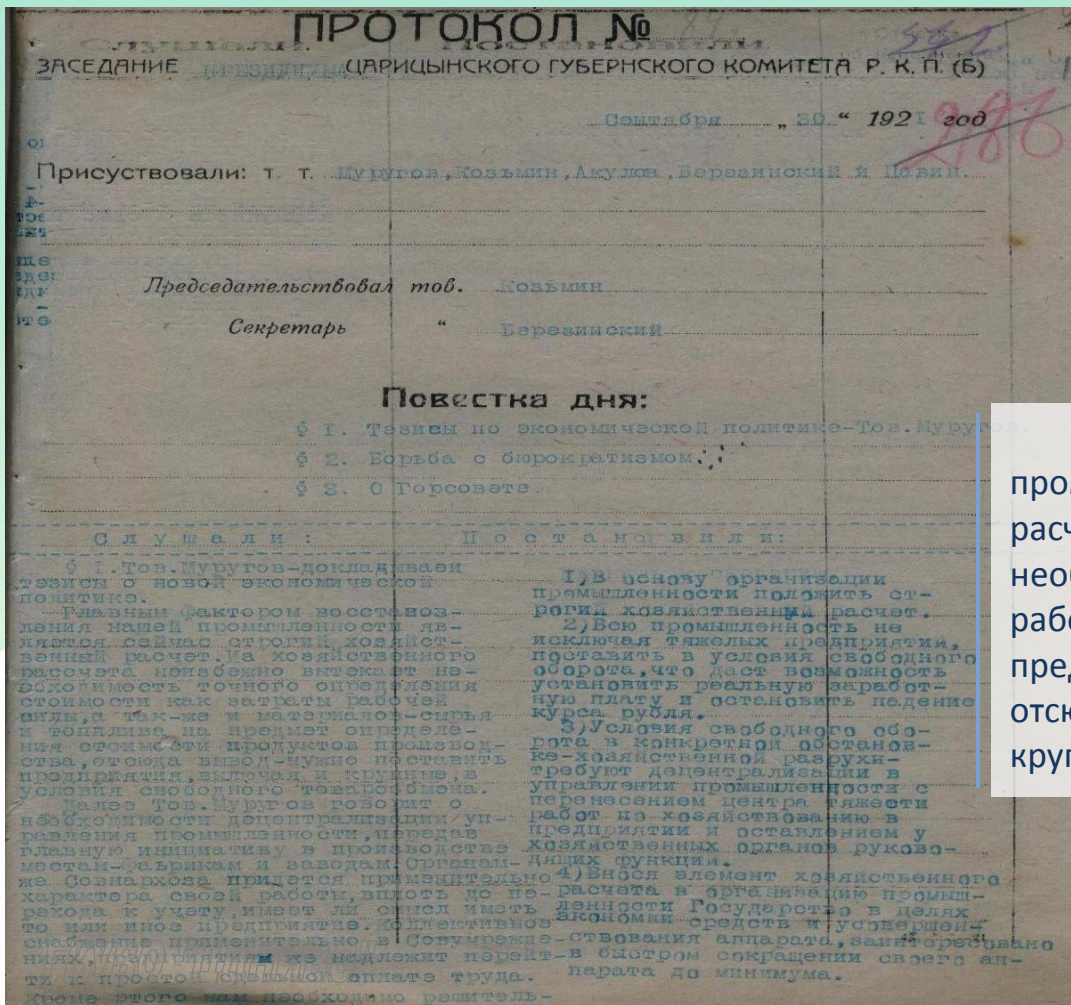 ПРОТОКОЛ № 84
Слушали. Постановили
ЗАСЕДАНИЕ ПРЕЗИДИУМА ЦАРИЦЫНСКОГО ГУБЕРНСКОГО КОМИТЕТА Р. К. П. (Б)
Сентября „ 30 “ 1921 год
286
Присуствовали: т. т. Муругов, Козьмин, Акулов, Березинский и Левин.
Председательствовал тов. Козьмин
Секретарь “ Березинский
Повестка дня:
§ I. Тезисы по экономической политике-Тов.Муругов.
§ 2. Борьба с бюрократизмом.
§ 3. О Горсовете.
Слушали:
§ I.Тов.Муругов-докладываеи
тезисы о новой экономической
политике.
Главным фактором восстанов-
ления нашей промышленности яв-
ляется сейчас строгий хозяйст-
венный расчет.Из хозяйственного
рассчета неизбежно вытекает не-
обходимость точного определения
стоимости как затраты рабочей
силы,а так-же и материалов-сырья
и топлива на предмет определе-
ния стоимости продуктов производ-
ства,отсюда вывод-нужно поставить
предприятия,включая и крупные,в
условия свободного товарообмена.
Далее Тов.Муругов говорит о
необходимости децентрализации уп-
равления промышленности,передав
главную инициативу в производстве
местам-фабрикам и заводам.Органам-
же Совнархоза придется применительно
характера своей работы,вплоть до пе-
рехода к учету,имеет ли смысл иметь
то или иное предприятие.Коллективное
снабжение применительно в Совучрежде-
ниях,предприятиям же надлежит перейт-
ти к простой сдельной оплате труда.
Кроме этого нам необходимо решитель-
Постановили:
I)В основу организации
промышленности положить ст-
рогий хозяйственный расчет.
2)Всю промышленность не
исключая тяжелых предприятий,
поставить в условия свободного
оборота,что даст возможность
установить реальную заработ-
ную плату и остановить падение
курса рубля.
3)Условия свободного обо-
рота в конкретной обстанов-
ке-хозяйственной разрухи-
требуют децентрализации в
управлении промышленности с
перенесением центра тяжести
работ по хозяйствованию в
предприятии и оставлением у
хозяйственных органов руково-
дящих функций.
4)Внося элемент хозяйственного
расчета в организацию промыш-
ленности Государство в целях
экономии средств и усовершен-
ствования аппарата,заинтересовано
в быстром сокращении своего ап-
парата до минимума.